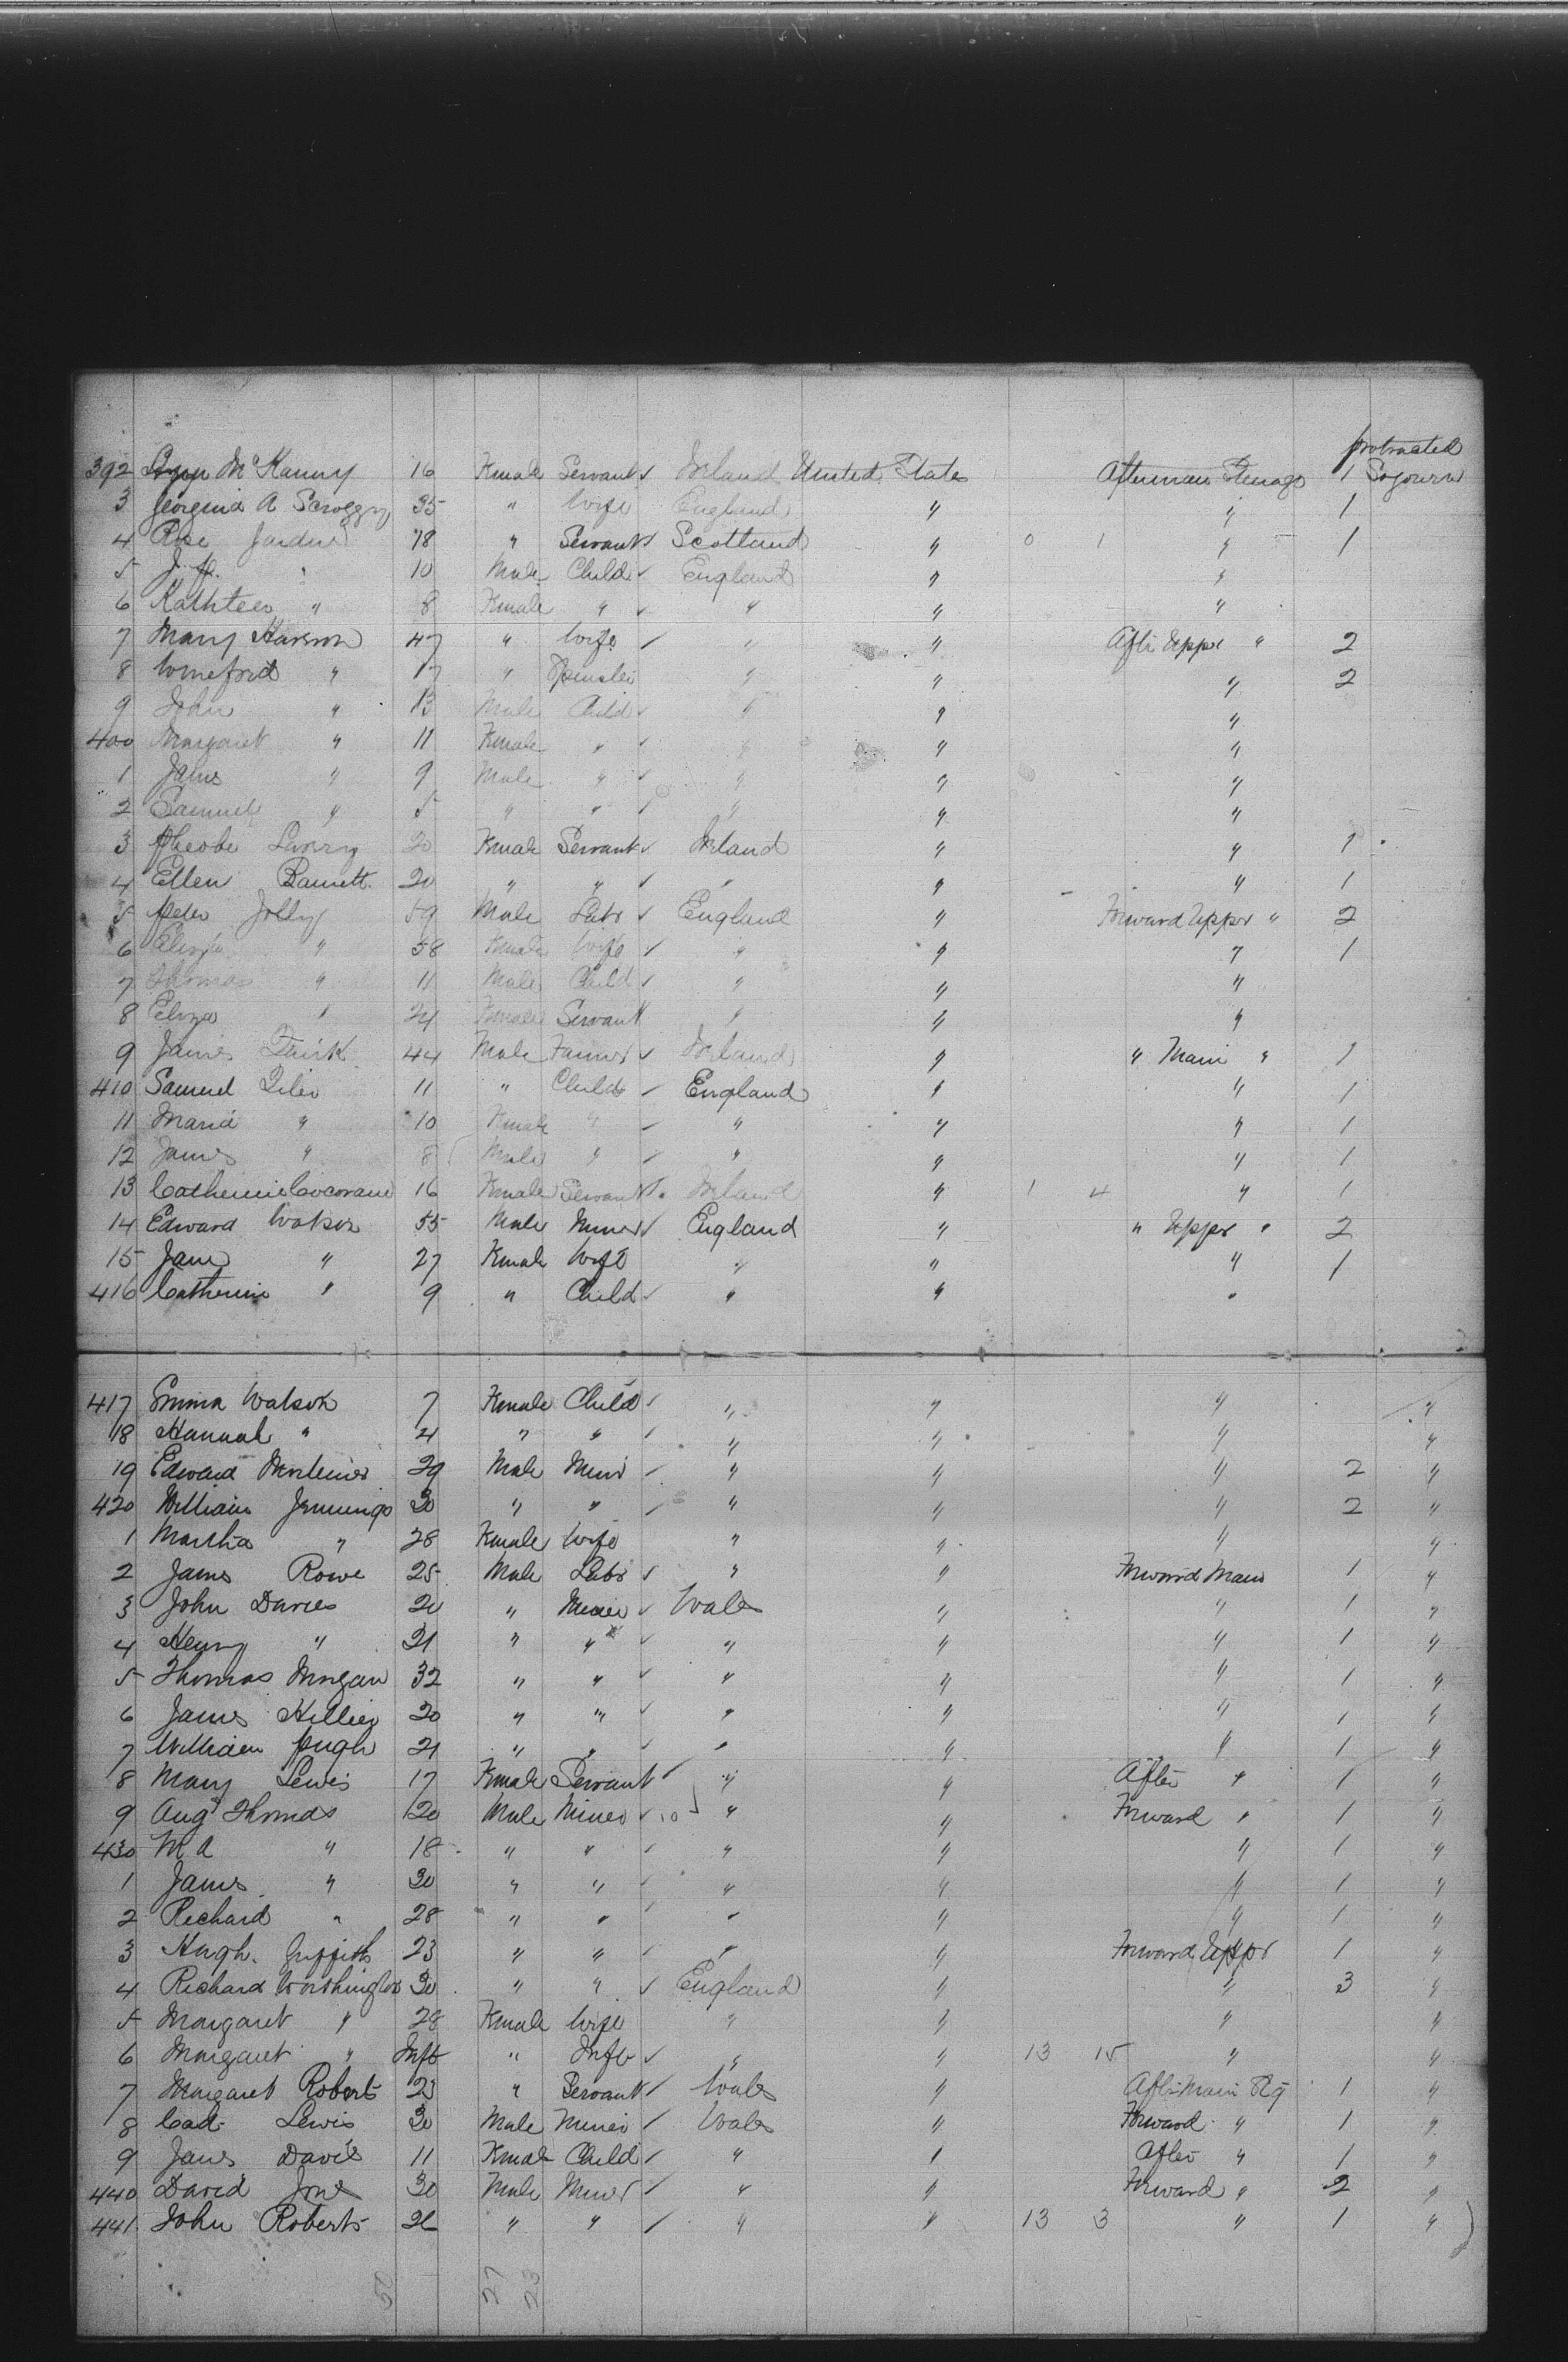 protracted
392 McKanny 16 Female Servant Ireland United States Aftermain Steerage 1 Sojourn
3 Georgina A Scroggy 35 " Wife England " " 1
4 Rose Jardine 78 " Servant Scotland " 0 1 " 1
5 " 10 Male Child England " "
6 Kathleen " 8 Female " " " "
7 Mary 47 " Wife " " Aftr Upper " 2
8 Winefred " 17 " Spinster " " " 2
9 John " 13 Male Child " " "
400 Margaret " 11 Female " " " "
1 James " 9 Male " " " "
2 Samuel " 5 " " " " "
3 Pheobe Lavery 20 Female Servant Ireland " " 1
4 Ellen Barnett 20 " " " " " 1
5 Peter Jolly 59 Male Labr England " Forward Upper " 2
6 " 58 Female Wife " " " 1
7 Thomas " 11 Male Child " " "
8 Eliza " 24 Female Servant " " "
9 James 44 Male Farmer Ireland " " Main " 1
410 Samuel 11 " Child England " " 1
11 Maria " 10 Female " " " " 1
12 James " 8 Male " " " " 1
13 Catherine Cocorane 16 Female Servant Ireland " 1 4 " 1
14 Edward Watson 55 Male Miner England " " Upper " 2
15 Jane " 27 Female Wife " " " 1
416 Catherine " 9 " Child " " "
417 Emma Watson 7 Female Child " " " "
18 Hannah " 4 " " " " " "
19 Edward Mortimer 29 Male Miner " " " 2 "
420 William Jennings 30 " " " " " 2 "
1 Martha " 28 Female Wife " " " "
2 James Rowe 25 Male Labr " " Forward Main 1 "
3 John Davies 20 " Miner Wales " " 1 "
4 Henry " 21 " " " " " 1 "
5 Thomas Morgan 32 " " " " " 1 "
6 James Hillier 20 " " " " " 1 "
7 William Pugh 21 " " " " " 1 "
8 Mary Lewis 17 Female Servant " " After " 1 "
9 Aug Thomas 20 Male Miner 10 " " Forward " 1 "
430 " 18 " " " " " 1 "
1 James " 30 " " " " " 1 "
2 Richard " 28 " " " " " 1 "
3 Hugh Griffith 23 " " " " Forward Uppr 1 "
4 Richard Worthington 30 " " England " " 3 "
5 Margaret " 28 Female Wife " " " "
6 Margaret " Inft " Inft " " 13 15 " "
7 Margaret Roberts 23 " Servant Wales " Aftr Main Stg 1 "
8 Cad Lewis 30 Male Miner Wales " Forward " 1 "
9 Jane Davis 11 Female Child " " After " 1 "
440 David Jone 30 Male Miner " " Forward " 2 "
441 John Roberts 26 " " " " 13 3 " 1 "
50 27 23